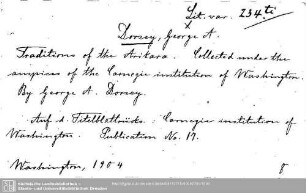 Lit. var. 234ti
Dorsey, George A.
Traditions of the Arikara. Collected under the
auspices of the Carnegie institution of Washington.
By George A. Dorsey.
Auf d. Titelblattrücks.: Carnegie institution of
Washington. Publication No. 17.
Washington, 1904
8
Sächsische Landesbibliothek -
Staats- und Universitätsbibliothek Dresden